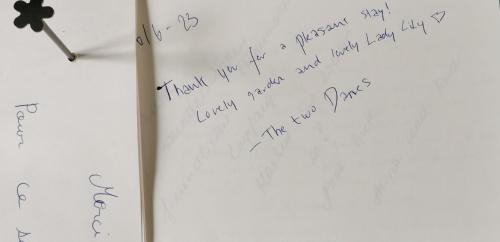 6/6-23
Thank you for a pleasant stay!
Lovely garden and lovely Lady Lily ♡
- The two Danes
Merci
Pour ce